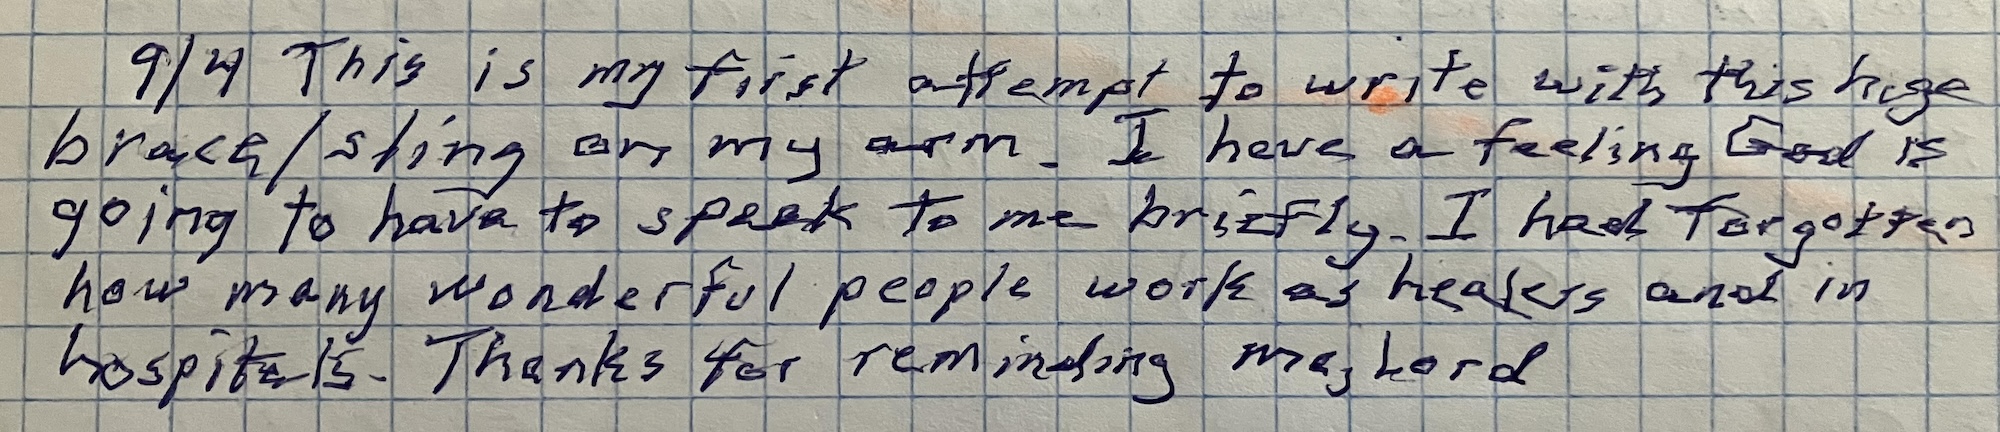 9/4 This is my first attempt to write with this huge
brace/sling on my arm. I have a feeling God is
going to have to speak to me briefly. I had forgotten
how many wonderful people work as healers and in
hospitals. Thanks for reminding me, Lord